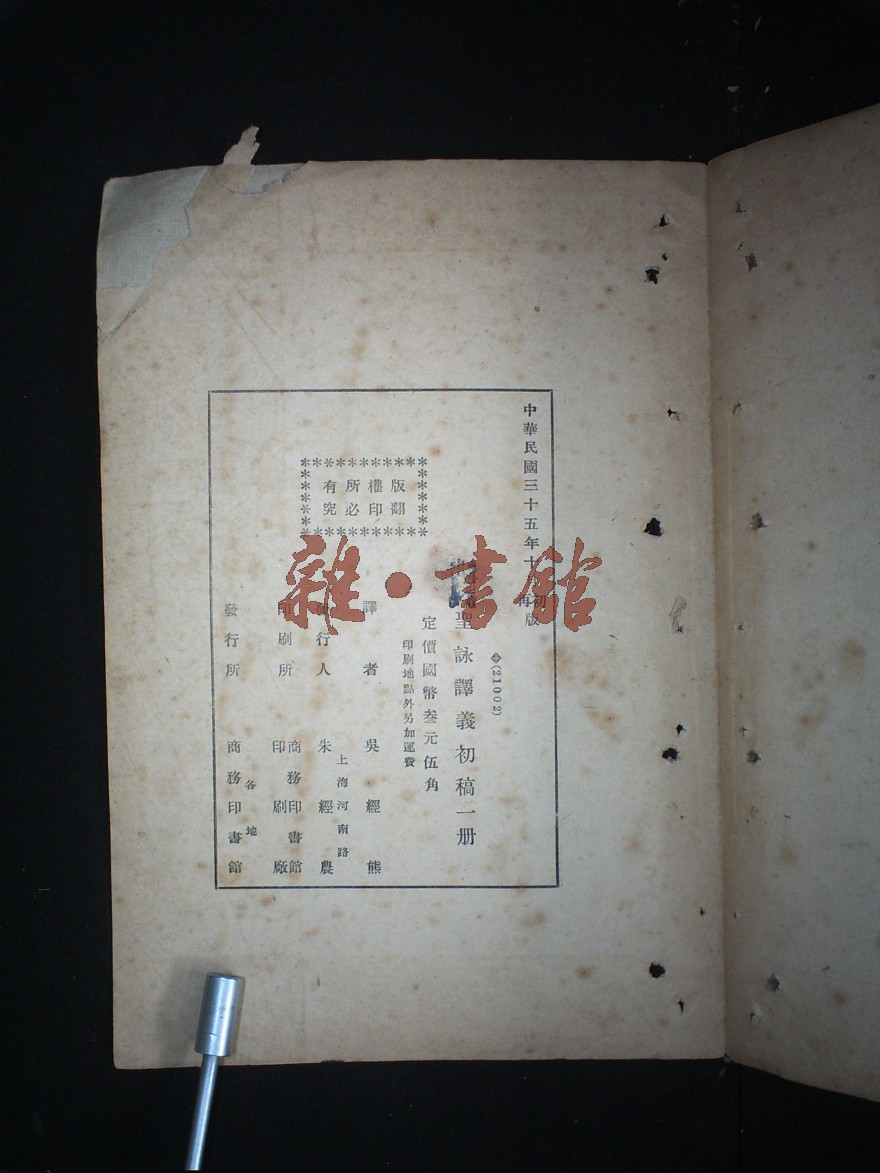 中華民國三十五年十
初版
再
(21002)
聖詠譯義初稿一册
定價國幣叁元伍角
印刷地點外另加運費
版權所有
翻印必究
譯者 吳經熊
上海河南路
發行人 朱經農
印刷所 商務印書館印刷廠
各地
發行所 商務印書館
雜·書館